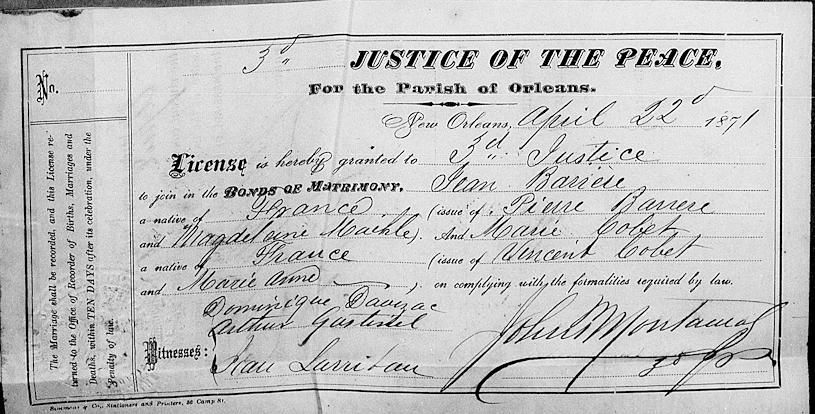 No.
The Marriage shall be recorded, and this License re-
turned to the Office of Recorder of Births, Marriages and
Deaths, within TEN DAYS after its celebration, under the
Penalty of law.
3d JUSTICE OF THE PEACE,
For the Parish of Orleans.
New Orleans, April 22d 1871
License is hereby granted to 3d Justice
to join in the BONDS OF MATRIMONY, Jean Barrère
a native of France (issue of Pierre Barrere
and Magdelaine). And Marie Cobet
a native of France (issue of Vincent Cobet
and Marie Anne ), on complying with the formalities required by law.
Dominique Davezac
Arthur
Witnesses: Jean Larribau
John
3d JP
& Co., Stationers and Printers, 56 Camp St.